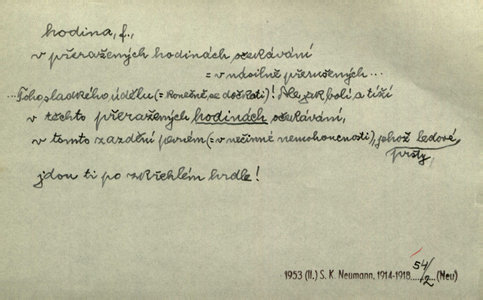 hodina, f.,
v přeražených hodinách očekávání
= v násilně přerušených...
...Toho sladkého údělu (= konečně se dočkati)! Ale jak bolí a tíží
v těchto přeražených hodinách očekávání,
v tomto zazdění pevném (= v nečinné nemohoucnosti), jehož ledové
prsty
jdou ti po ztichlém hrdle!
1953 (II.) S. K. Neumann, 1914-1918.....54/2 (Neu)